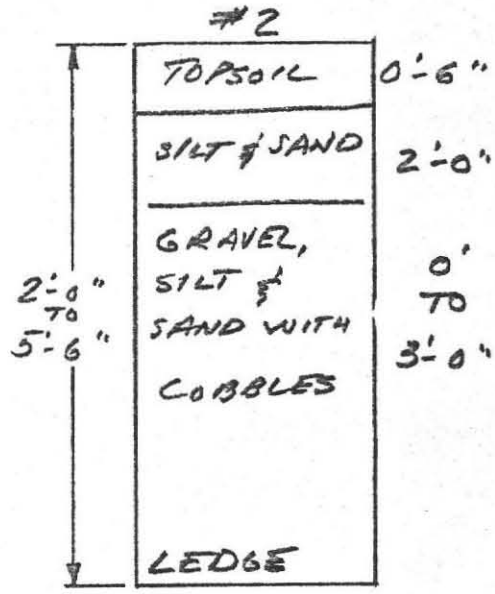 #2
TOPSOIL 0'-6"
SILT & SAND 2'-0"
GRAVEL,
SILT &
SAND WITH
COBBLES
0'
TO
3'-0"
2'-0"
TO
5'-6"
LEDGE